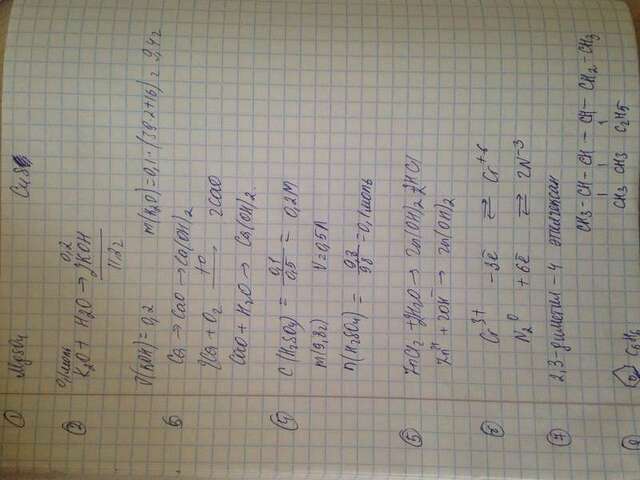 ① MgSO₄ CuS
0,1моль 0,2
② K₂O + H₂O → 2KOH
11,2г
ν(KOH) = 0,2 m(K₂O) = 0,1·(39·2+16) = 9,4г
Ca → CaO → Ca(OH)₂
2Ca + O₂ →(t°) 2CaO
CaO + H₂O → Ca(OH)₂.
④ C(H₂SO₄) = 0,1/0,5 = 0,2M
m(9,8г) V=0,5л
n(H₂SO₄) = 9,8/98 = 0,1моль
⑤ ZnCl₂ + 2H₂O → Zn(OH)₂ + 2HCl
Zn²⁺ + 2OH⁻ → Zn(OH)₂
Cr³⁺ -3ē ⇄ Cr⁺⁶
N₂⁰ +6ē ⇄ 2N⁻³
⑦ 2,3-диметил-4 этилгексан
CH₃-CH-CH-CH-CH₂-CH₃
CH₃ CH₃ C₂H₅
C₆H₆